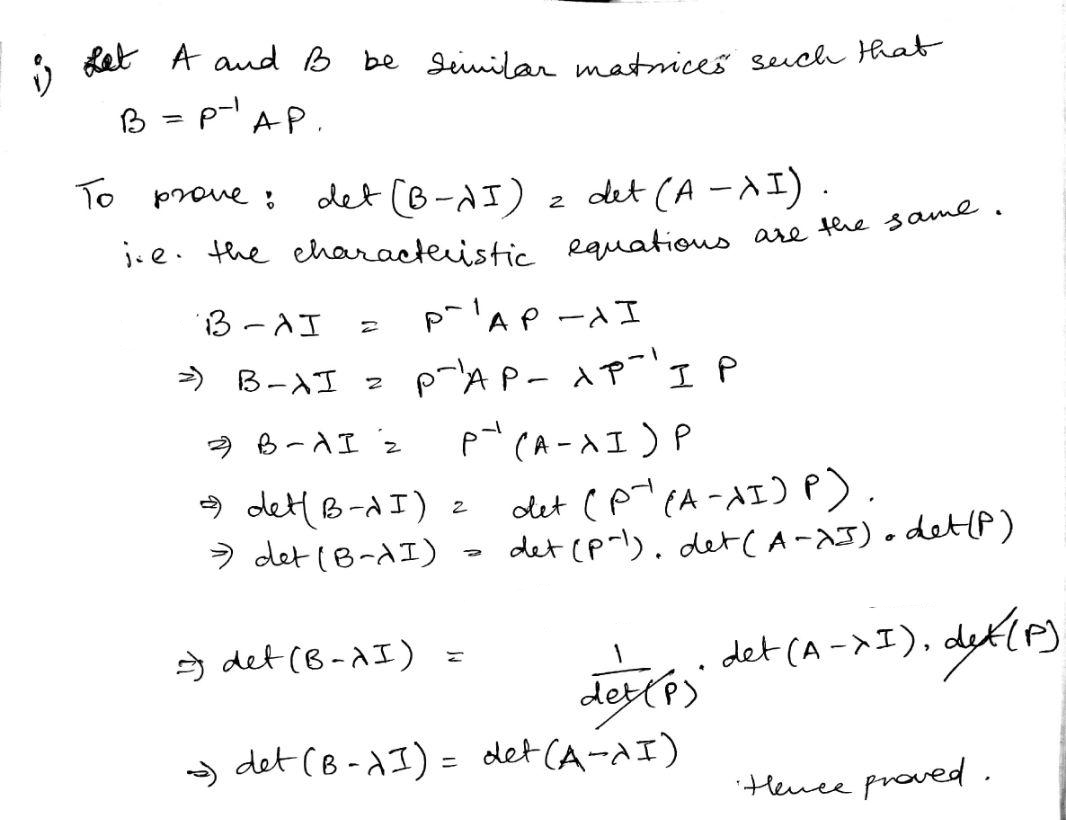 i) Let A and B be similar matrices such that
B = P⁻¹ AP.
To prove : det (B-λI) = det (A - λI) .
i.e. the characteristic equations are the same .
B - λI = P⁻¹AP - λI
⇒ B-λI = P⁻¹AP - λP⁻¹ I P
⇒ B-λI = P⁻¹ (A-λI) P
⇒ det(B-λI) = det (P⁻¹ (A-λI) P) .
⇒ det (B-λI) = det (P⁻¹). det (A-λI) . det(P)
⇒ det (B-λI) = 1/det(P) . det (A-λI). det(P)
⇒ det (B-λI) = det (A-λI)
Hence proved .